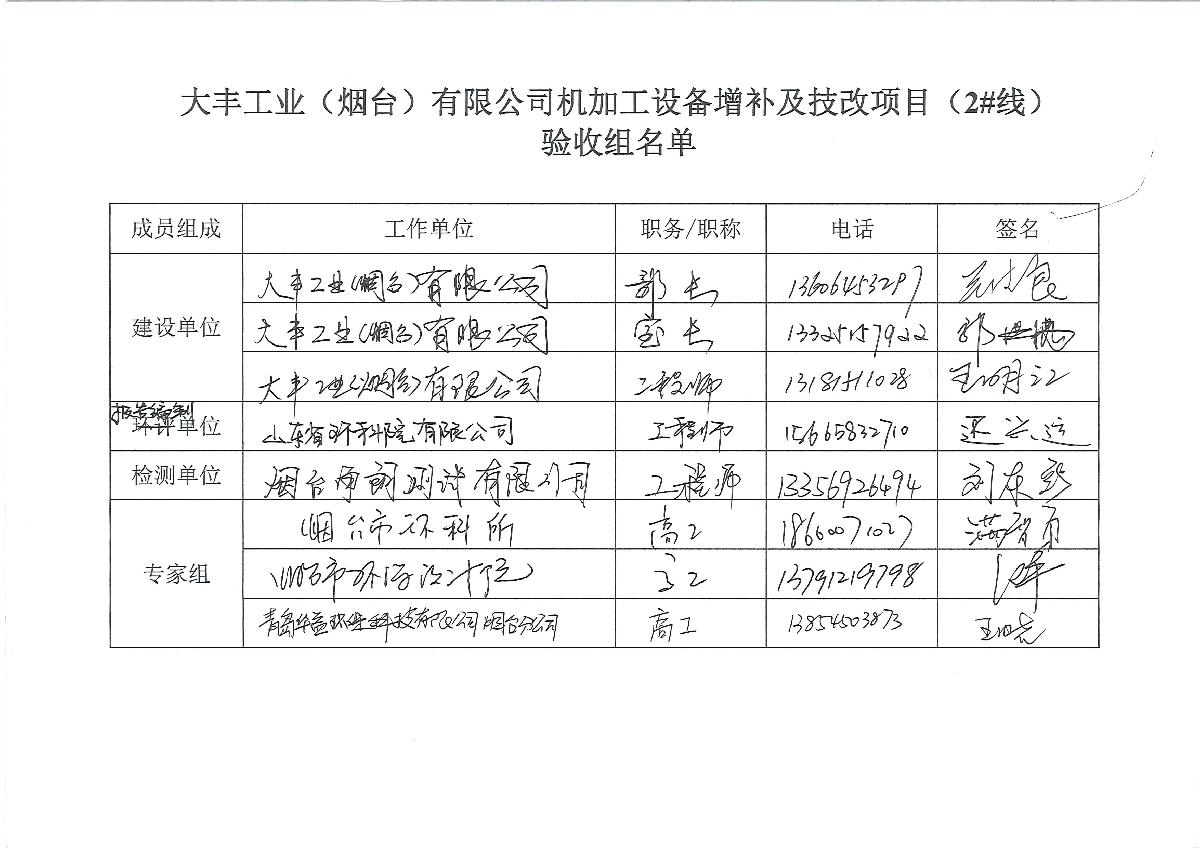 大丰工业（烟台）有限公司机加工设备增补及技改项目（2#线）
验收组名单
成员组成 工作单位 职务/职称 电话 签名
建设单位 大丰工业(烟台)有限公司 部长 13606453297
大丰工业(烟台)有限公司 室长 13325157922
大丰工业(烟台)有限公司 工程师 13181511028 王明江
报告编制
环评单位 山东省环科院有限公司 工程师 15665832710
检测单位 烟台 测试有限公司 工程师 13356926494 刘东
专家组 烟台市环科所 高工 18660071027
烟台市环海设计院 高工 13791219798
青岛华益环保科技有限公司烟台分公司 高工 13854503873